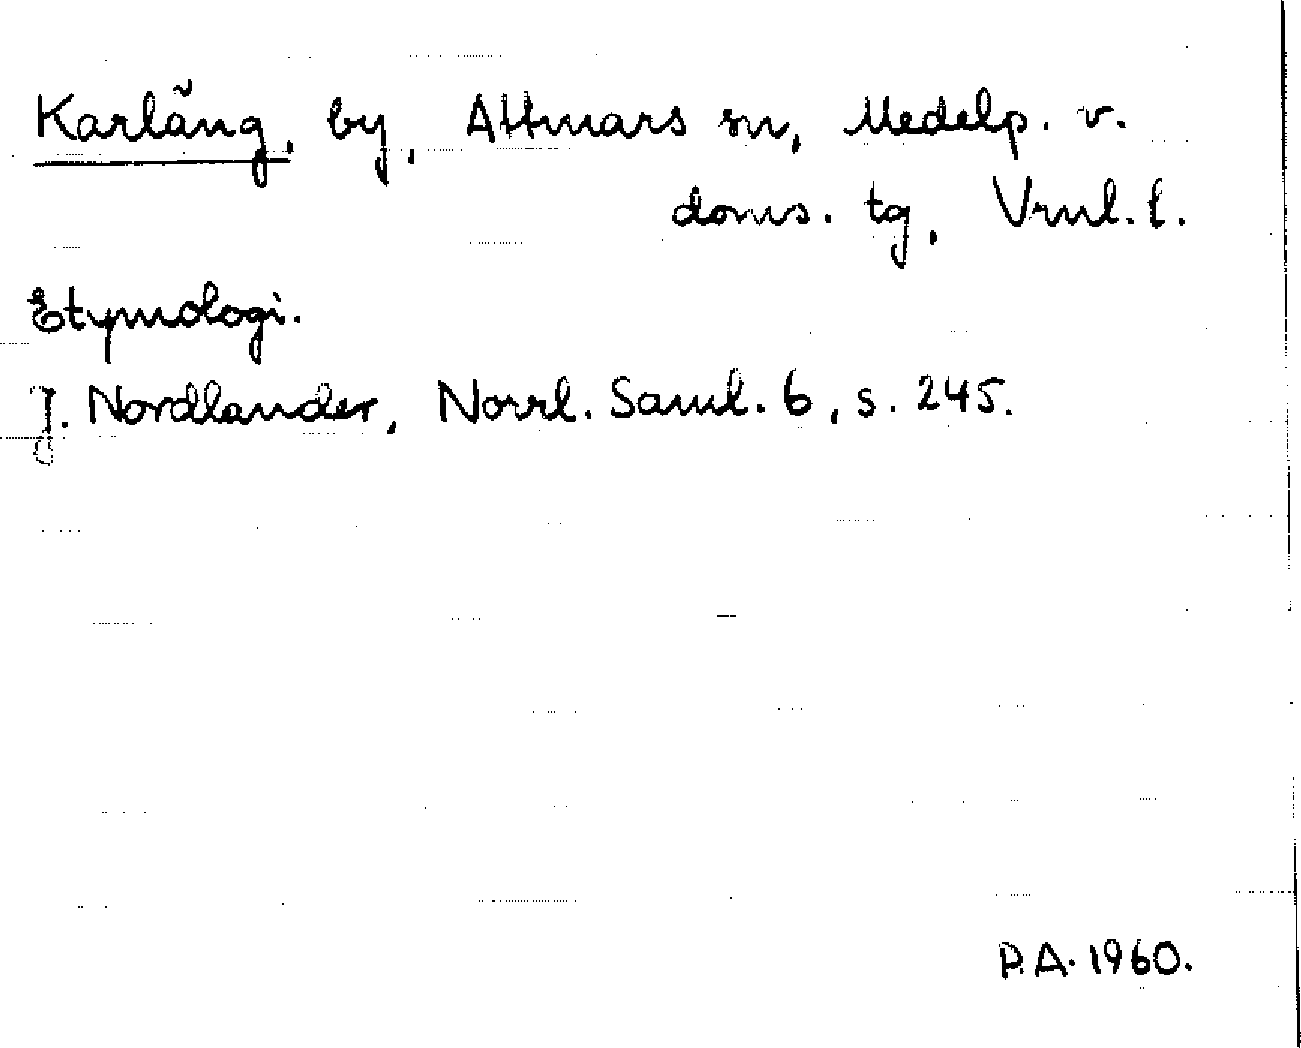 Karläng, by, Attmars sn, Medelp. v.
doms. tg, Vrnl. l.
Etymologi.
J. Nordlander, Norrl. Saml. 6, s. 245.
P.A. 1960.